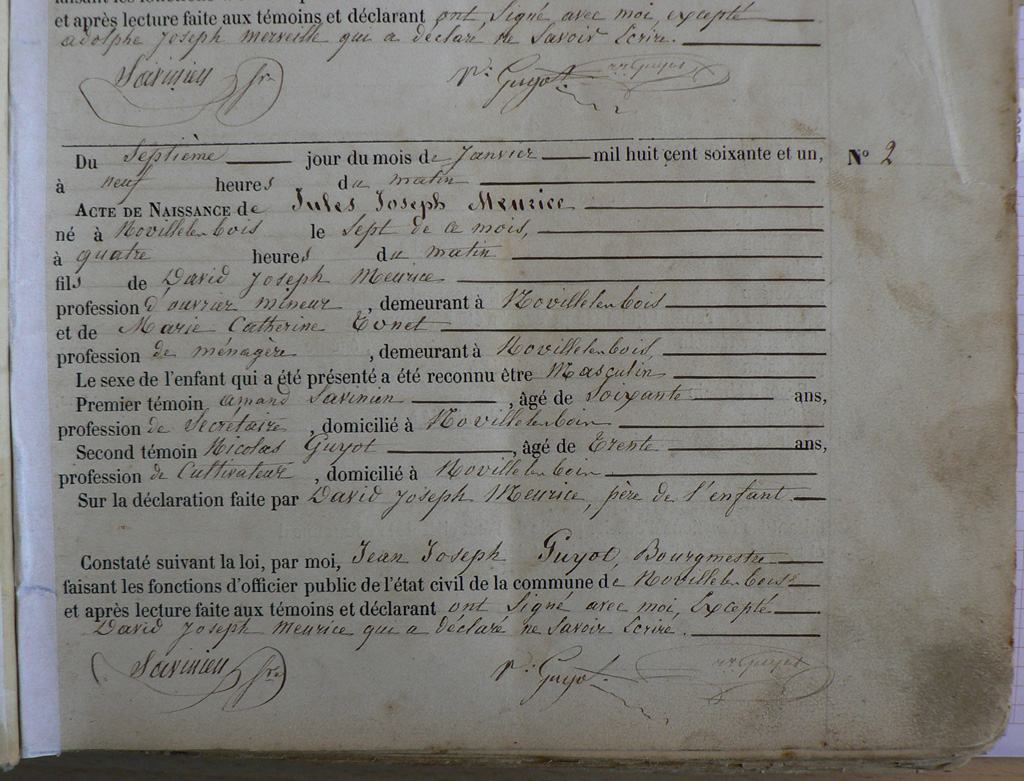 et après lecture faite aux témoins et déclarant ont, Signé, avec moi, excepté
adolphe Joseph merveille qui a déclaré ne Savoir Ecrire.
Savinien
Guyot
Du Septième jour du mois de Janvier mil huit cent soixante et un, N° 2
à neuf heures du matin
ACTE DE NAISSANCE de Jules Joseph Meurice
né à Noville les bois le Sept de ce mois,
à quatre heures du matin
fils de David Joseph Meurice
profession d'ouvrier mineur, demeurant à Noville les bois
et de Marie Catherine Evnet
profession de ménagère, demeurant à Noville les bois,
Le sexe de l'enfant qui a été présenté a été reconnu être Masculin
Premier témoin amand Savinien, âgé de Soixante ans,
profession de Secrétaire, domicilié à Noville les bois
Second témoin Nicolas Guyot, âgé de Trente ans,
profession de Cultivateur, domicilié à Noville les bois
Sur la déclaration faite par David Joseph Meurice, père de l'enfant
Constaté suivant la loi, par moi, Jean Joseph Guyot, Bourgmestre
faisant les fonctions d'officier public de l'état civil de la commune de Noville les bois
et après lecture faite aux témoins et déclarant ont Signé avec moi, Excepté
David Joseph Meurice qui a déclaré ne Savoir Ecrire.
Savinien
Guyot